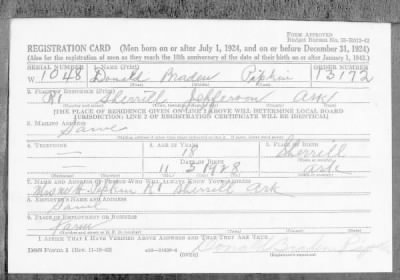 FORM APPROVED
REGISTRATION CARD (Men born on or after July 1, 1924, and on or before December 31, 1924)
(Also for the registration of men as they reach the 18th anniversary of the date of their birth on or after January 1, 1943.)
SERIAL NUMBER 1. NAME (Print) ORDER NUMBER
W 1048 Donald Braden Pipkin 13172
(First) (Middle) (Last)
2. PLACE OF RESIDENCE (Print)
R1 Sherrill Jefferson Ark
[THE PLACE OF RESIDENCE GIVEN ON LINE 2 ABOVE WILL DETERMINE LOCAL BOARD
JURISDICTION; LINE 2 OF REGISTRATION CERTIFICATE WILL BE IDENTICAL]
3. MAILING ADDRESS
Same
4. TELEPHONE 5. AGE IN YEARS 6. PLACE OF BIRTH
— 18 Sherrill
DATE OF BIRTH
— 11 3 1928 Ark
7. NAME AND ADDRESS OF PERSON WHO WILL ALWAYS KNOW YOUR ADDRESS
Pipkin R1 Sherrill Ark
8. EMPLOYER'S NAME AND ADDRESS
9. PLACE OF EMPLOYMENT OR BUSINESS
Farm
I AFFIRM THAT I HAVE VERIFIED ABOVE ANSWERS AND THAT THEY ARE TRUE.
DSS Form 1 Donald Braden Pipkin